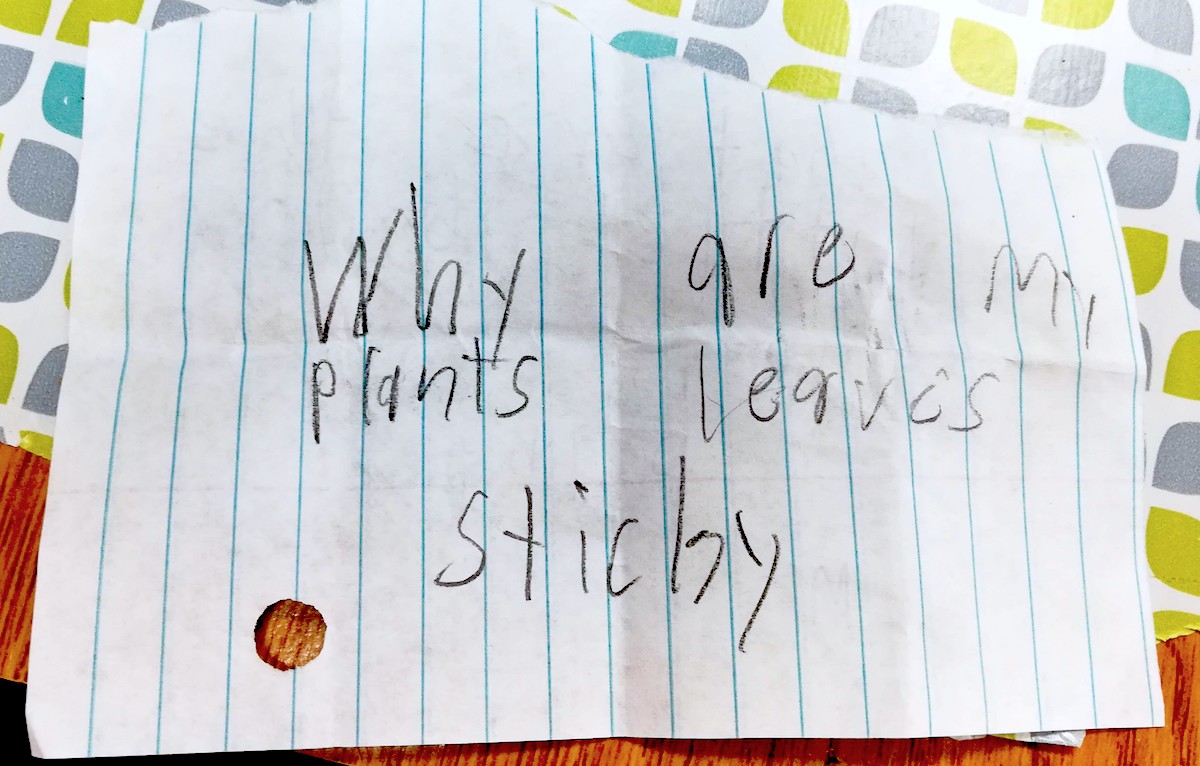 Why are my
plants leaves
sticky